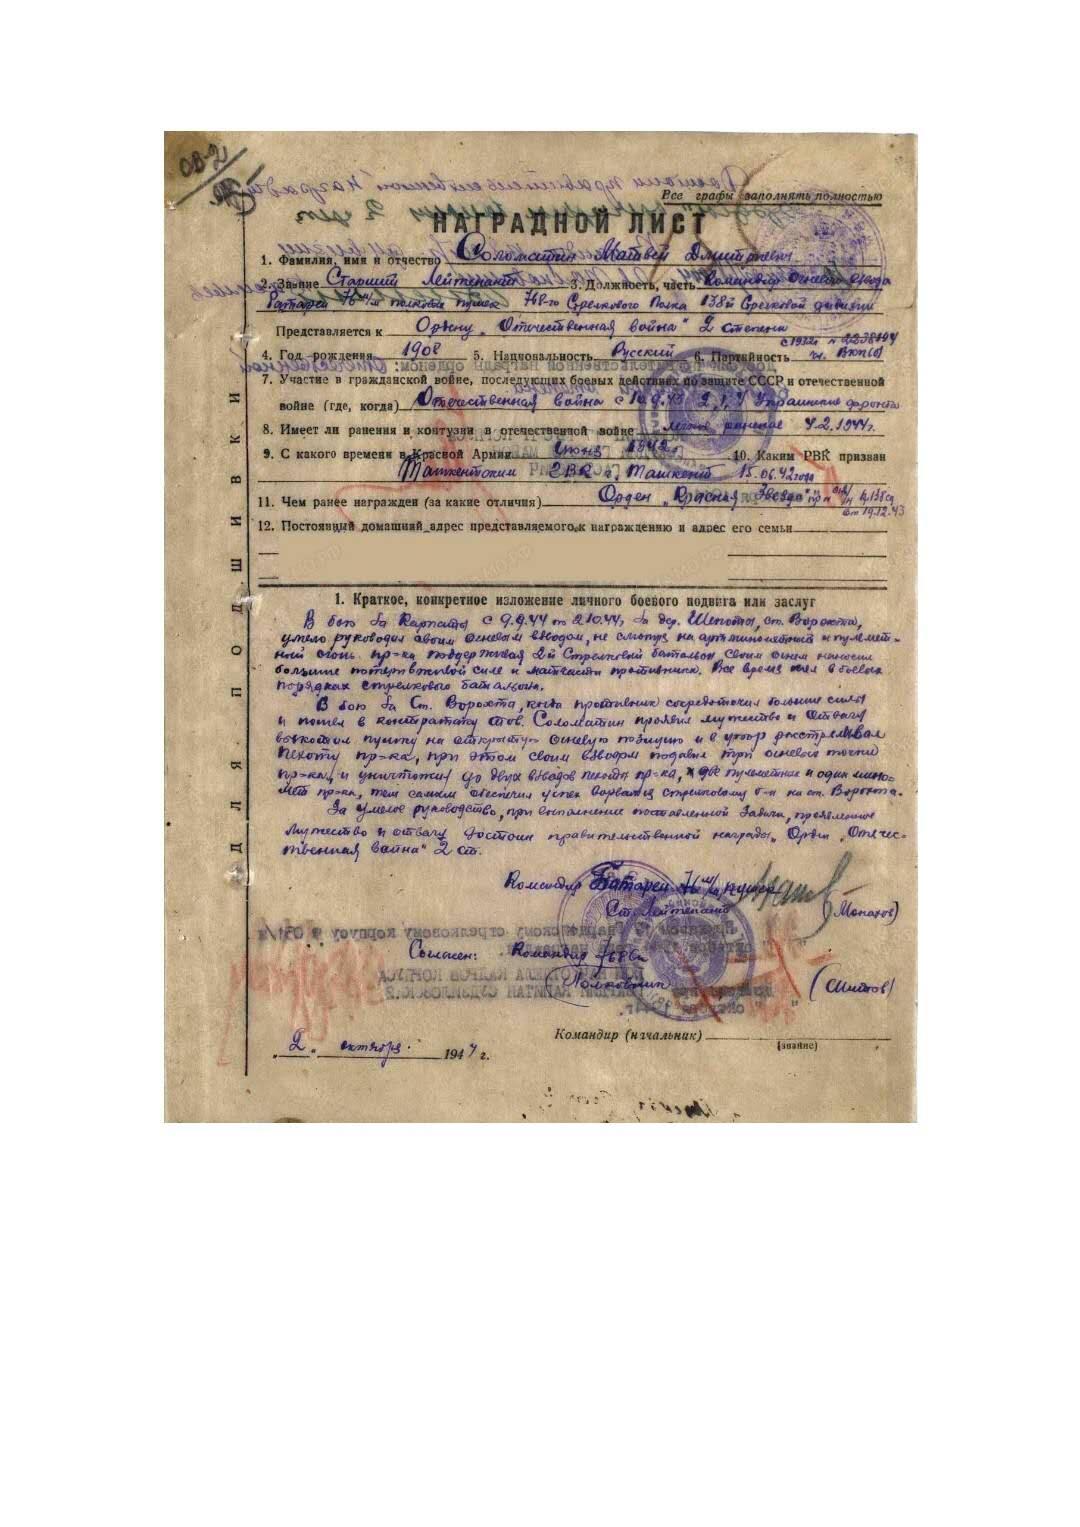 Все графы заполнять полностью
НАГРАДНОЙ ЛИСТ
1. Фамилия, имя и отчество Соломатин Матвей Дмитриевич
2. Звание Старший Лейтенант 3. Должность, часть Командир огневого взвода
Батареи 76 м/м полковых пушек 768-го Стрелкового Полка 138й Стрелковой дивизии
Представляется к Ордену „Отечественная война" 2 степени
4. Год рождения 1908 5. Национальность Русский 6. Партийность чл. ВКП(б)
с 1932г
7. Участие в гражданской войне, последующих боевых действиях по защите СССР и отечественной
войне (где, когда) Отечественная война с 10.9.43 2, 1, 4 Украинские фронта
8. Имеет ли ранения и контузии в отечественной войне легкое ранение 4.2.1944г.
9. С какого времени в Красной Армии Июнь 1942 10. Каким РВК призван
Ташкентским ГВК г. Ташкент 15.06.42 года
11. Чем ранее награжден (за какие отличия) Орден „Красная Звезда" пр. 138 сд
от 19.12.43
12. Постоянный домашний адрес представляемого к награждению и адрес его семьи
ДЛЯ ПОДШИВКИ
1. Краткое, конкретное изложение личного боевого подвига или заслуг
В бою за Карпаты с 9.9.44 по 2.10.44г за дер. Шепоты, ст. Ворохта,
умело руководил своим огневым взводом, не смотря на артминометный и пулемет-
ный огонь пр-ка поддерживая 2й Стрелковый батальон своим огнем наносил
большие потери живой силе и матчасти противника. Все время шел в боевых
порядках стрелкового батальона.
В бою за Ст. Ворохта, когда противник сосредоточил большие силы
и пошел в контратаку тов. Соломатин проявил мужество и отвагу
выкотил пушку на открытую огневую позицию и в упор расстреливал
пехоту пр-ка, при этом своим взводом подавил три огневых точки
пр-ка, и уничтожил до двух взводов пехоты пр-ка, две пулеметные и один мино-
мет пр-ка, тем самым обеспечил успех ворваться стрелковому б-н на ст. Ворохта.
За умелое руководство, при выполнение поставленной Задачи, проявленное
мужество и отвагу достоин правительственной награды „Орден „Отечес-
твенная война" 2 ст.
Командир Батареи 76 м/м пушек
Ст. Лейтенант (Монахов)
Согласен: Командир 768 сп
Полковник (Шитов)
Командир (начальник)
(звание)
„2" октября 1944 г.